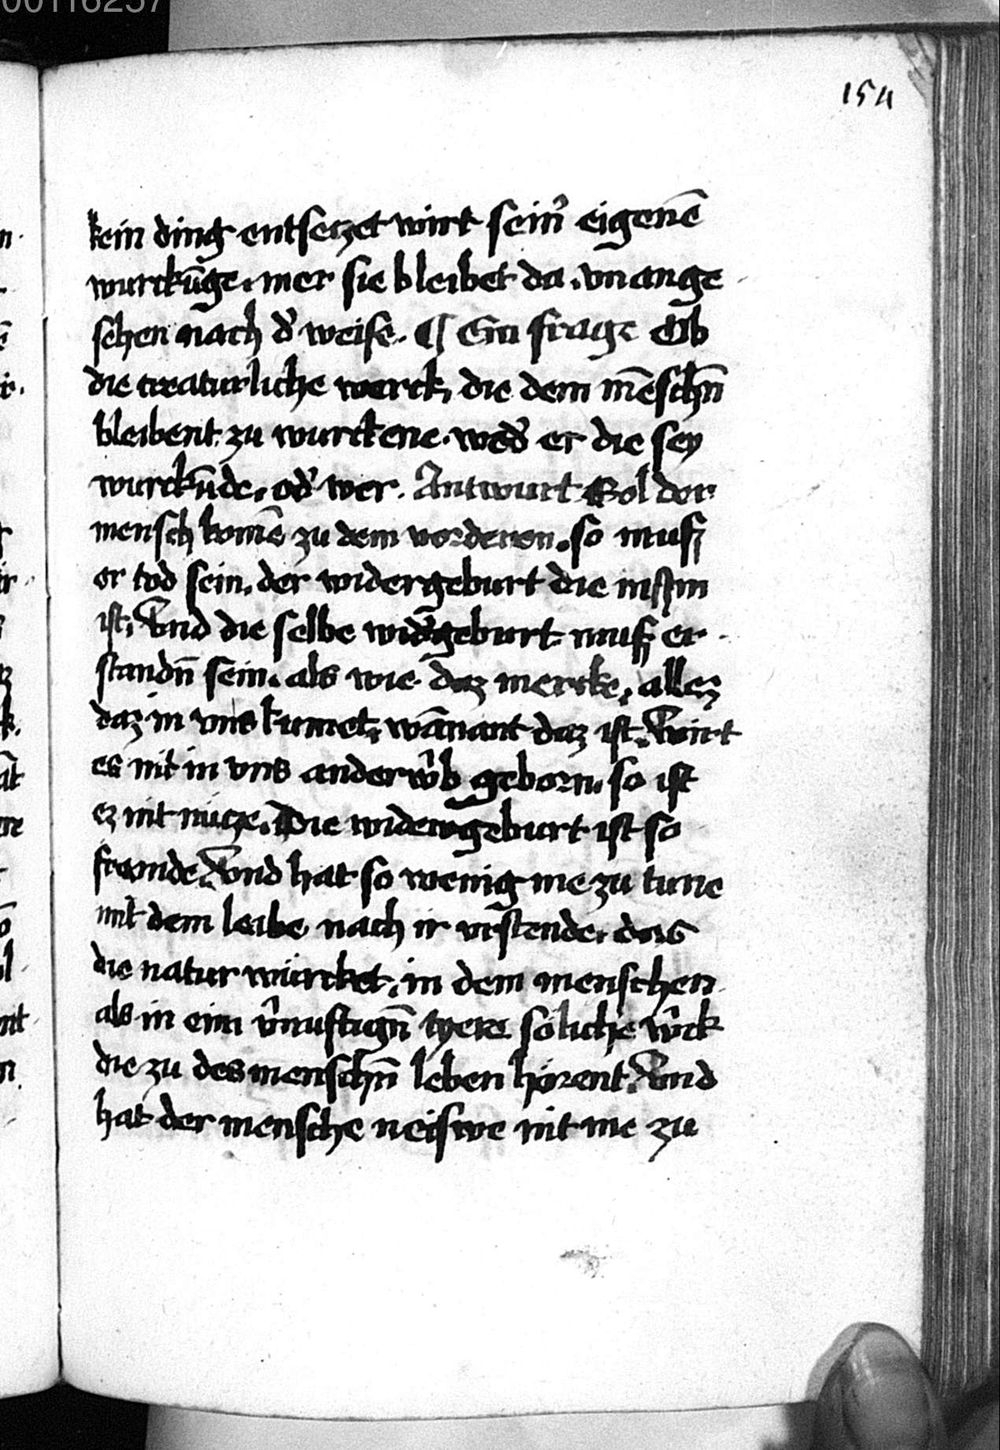 00116257
154
kein ding entseczet wirt sein᷑ eigenē
wurckūge. mer sie bleibet da. vnange
sehen nach d᷑ weise. ¶ Ein frage Ob
die creaturliche werck, die dem mēschn̄
bleibent zu wurckene. wed᷑ er die sey
wurckn̄de. od᷑ wer. Antwurt Sol der
mensch komē zu dem vorderen. so muß
er tod sein. der widergeburt die in
ist. Vnd die selbe wid᷑geburt muß er
standn̄ sein. als wie daz mercke, allez
daz in vns kumet, wānant daz ist. Wirt
es nit in vns anderw᷑b geborn. so ist
ez nit nücze. Die widergeburt ist so
fremde. Vnd hat so wenig me zu tune
mit dem leibe nach ir vrstende. das
die natur würcket. in dem menschen
als in eim v᷑nuftign̄ tyere soliche w᷑ck
die zu des menschn̄ leben hörent. Vnd
hat der mensche neiswe nit me zu